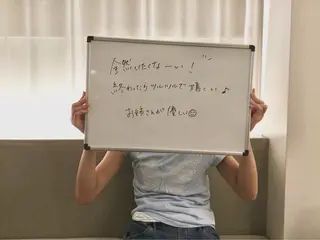 全然いたくなーい!
終わったらツルツルで嬉しい♪
お姉さんが優しい☺